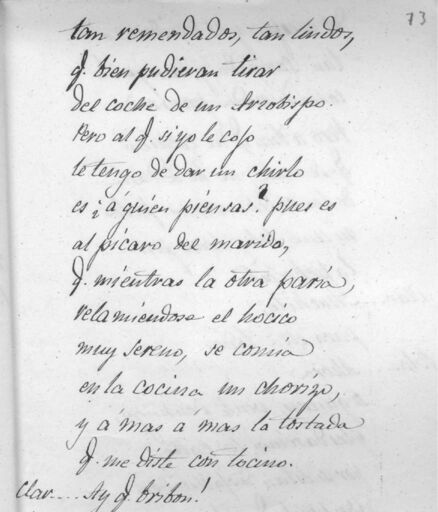 73
tan remendados, tan lindos,
q.e bien pudieran tirar
del coche de un Arzobispo.
Pero al q.e si yo le cojo
le tengo de dar un chirlo
es ¿á quién piénsas? pues es
al pícaro del marido,
q.e mientras la otra paria,
relamiéndose el hocico
muy sereno, se comia
en la cocina un chorizo,
y á mas a mas la tostada
q.e me diste con tocino.
Clar.... Ay q.e bribon!